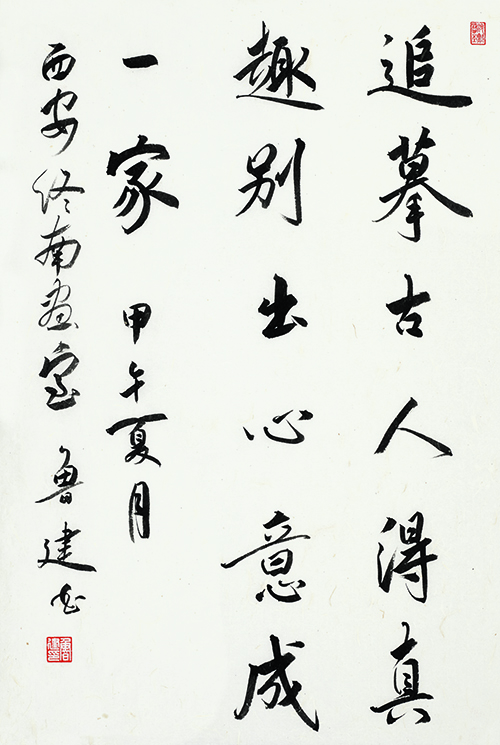 追摹古人得真
趣别出心意成
一家 甲午夏月
西安终南画室 鲁建书